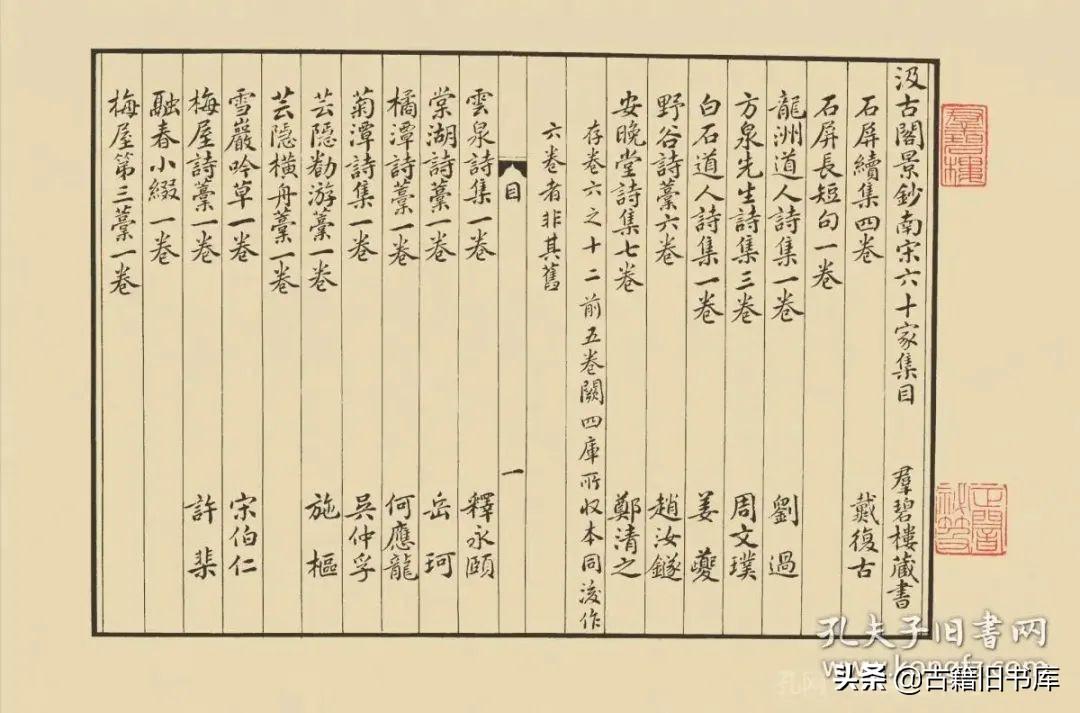 汲古閣景鈔南宋六十家集目 羣碧樓藏書
石屏續集四卷 戴復古
石屏長短句一卷
龍洲道人詩集一卷 劉過
方泉先生詩集三卷 周文璞
白石道人詩集一卷 姜夔
野谷詩藁六卷 趙汝鐩
安晚堂詩集七卷 鄭清之
存卷六之十二前五卷闕四庫所收本同後作
六卷者非其舊
目 一
雲泉詩集一卷 釋永頤
棠湖詩藁一卷 岳珂
橘潭詩藁一卷 何應龍
菊潭詩集一卷 吳仲孚
芸隱勸游藁一卷 施樞
芸隱橫舟藁一卷
雪巖吟草一卷 宋伯仁
梅屋詩藁一卷 許棐
融春小綴一卷
梅屋第三藁一卷
孔夫子旧书网
头条 @古籍旧书库